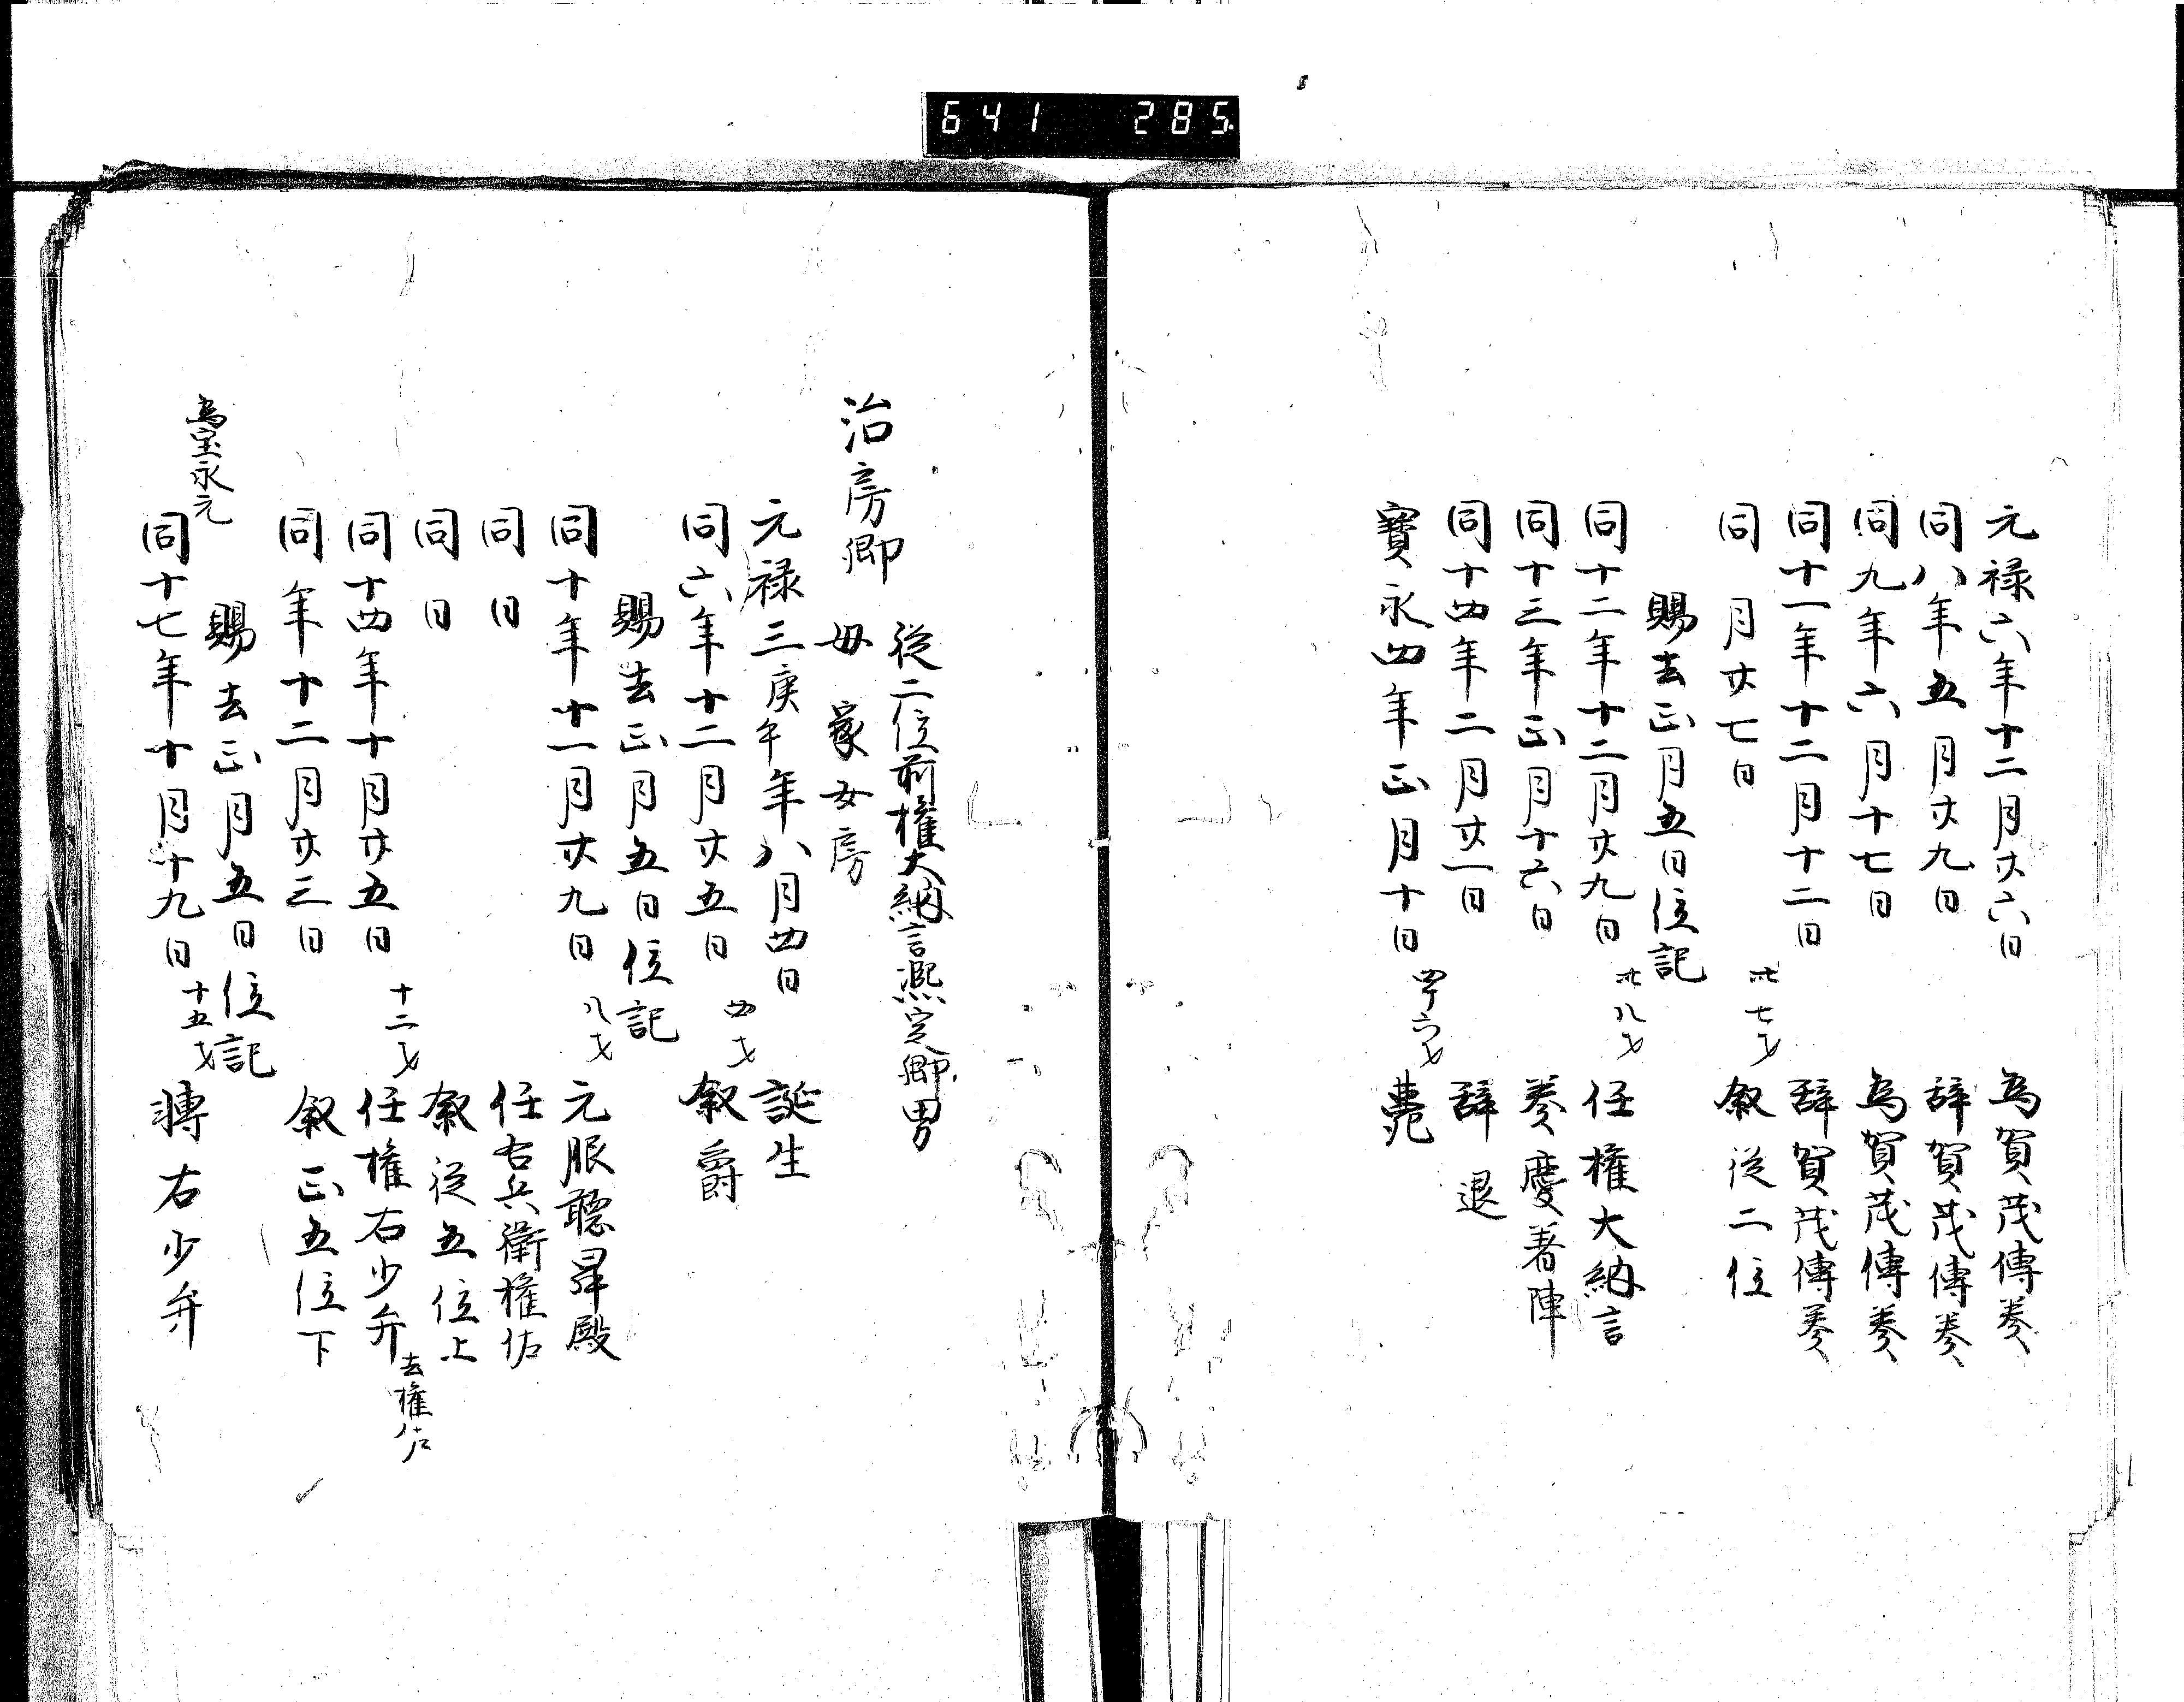 641 285
元禄六年十二月廿六日 為賀茂傳奏
同八年五月廿九日 辞賀茂傳奏
同九年六月十七日 為賀茂傳奏
同十一年十二月十二日 辞賀茂傳奏
同 月廿七日 卅七才 叙従二位
賜去正月五日位記
同十二年十二月廿九日 卅八才 任権大納言
同十三年正月十六日 奏慶著陣
同十四年二月廿一日 辞退
寶永四年正月十日 四十六才 薨
治房卿 従二位前権大納言熈定卿男
母家女房
元禄三庚午年八月四日 誕生
同六年十二月廿五日 四才 叙爵
賜去正月五日位記
同十年十一月廿九日 八才 元服聴昇殿
同日 任右兵衛権佐
同日 叙従五位上
同十四年十月廿五日 十二才 任権右少弁 去権佐
同年十二月廿三日 叙正五位下
賜去正月五日位記
為宝永元
同十七年十月十九日 十五才 轉右少弁